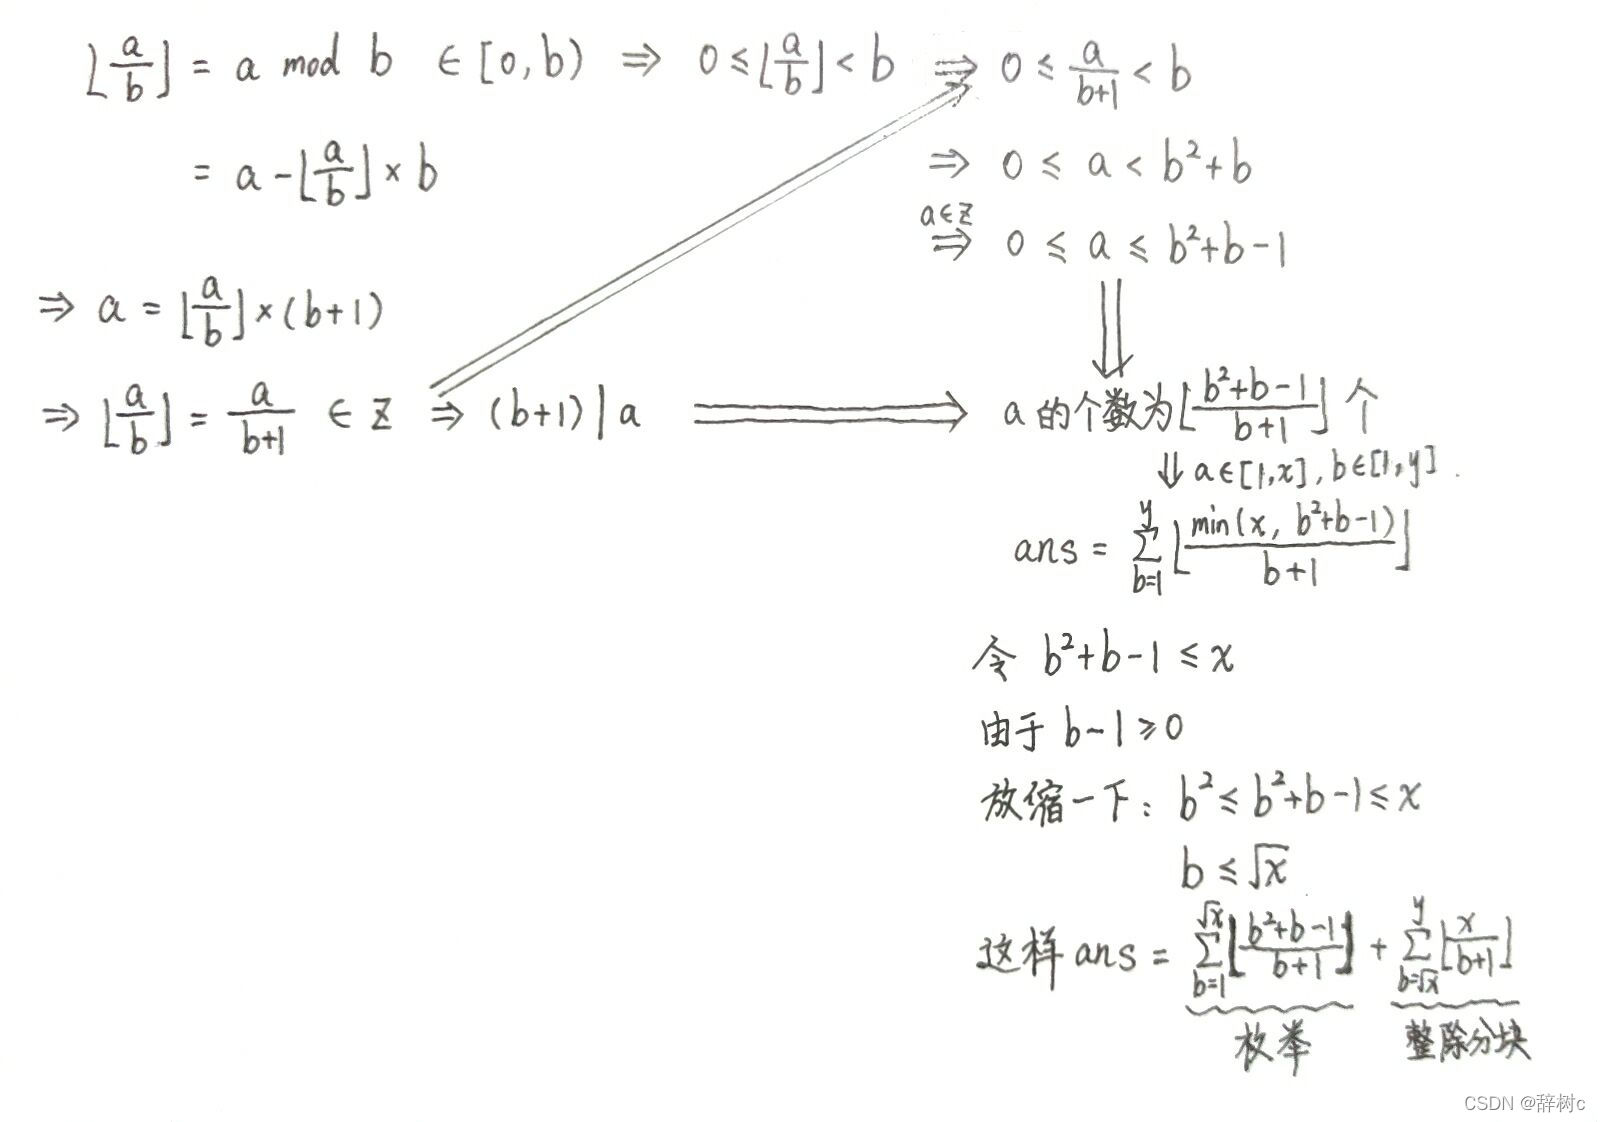 ⌊a/b⌋ = a mod b ∈ [0, b) ⇒ 0 ≤ ⌊a/b⌋ < b ⇒ 0 ≤ a/(b+1) < b
= a - ⌊a/b⌋ × b
⇒ 0 ≤ a < b²+b
a∈Z
⇒ 0 ≤ a ≤ b²+b-1
⇒ a = ⌊a/b⌋ × (b+1)
⇒ ⌊a/b⌋ = a/(b+1) ∈ Z ⇒ (b+1) | a ⇒ a的个数为⌊(b²+b-1)/(b+1)⌋个
⇓ a∈[1,x], b∈[1,y].
ans = ∑_{b=1}^{y} ⌊min(x, b²+b-1)/(b+1)⌋
令 b²+b-1 ≤ x
由于 b-1 ≥ 0
放缩一下: b² ≤ b²+b-1 ≤ x
b ≤ √x
这样 ans = ∑_{b=1}^{√x} ⌊(b²+b-1)/(b+1)⌋ + ∑_{b=√x}^{y} ⌊x/(b+1)⌋
枚举 整除分块
CSDN @辞树c